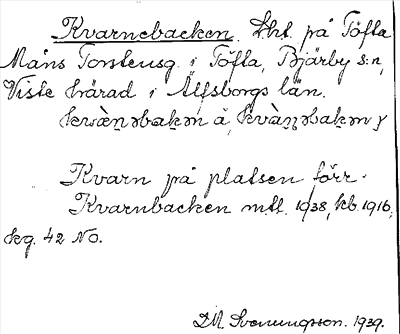 Kvarnebacken. Lht. på Töfta
Måns Torstensg. i Töfta, Bjärby s:n,
Viste härad i Älfsborgs län.
kwàn̥əbakəɲ å, kvàn̥əbakəɲ y
Kvarn på platsen förr.
Kvarnbacken mtl. 1938, kb. 1916,
kg. 42 NO.
D.M. Svenungsson. 1939.